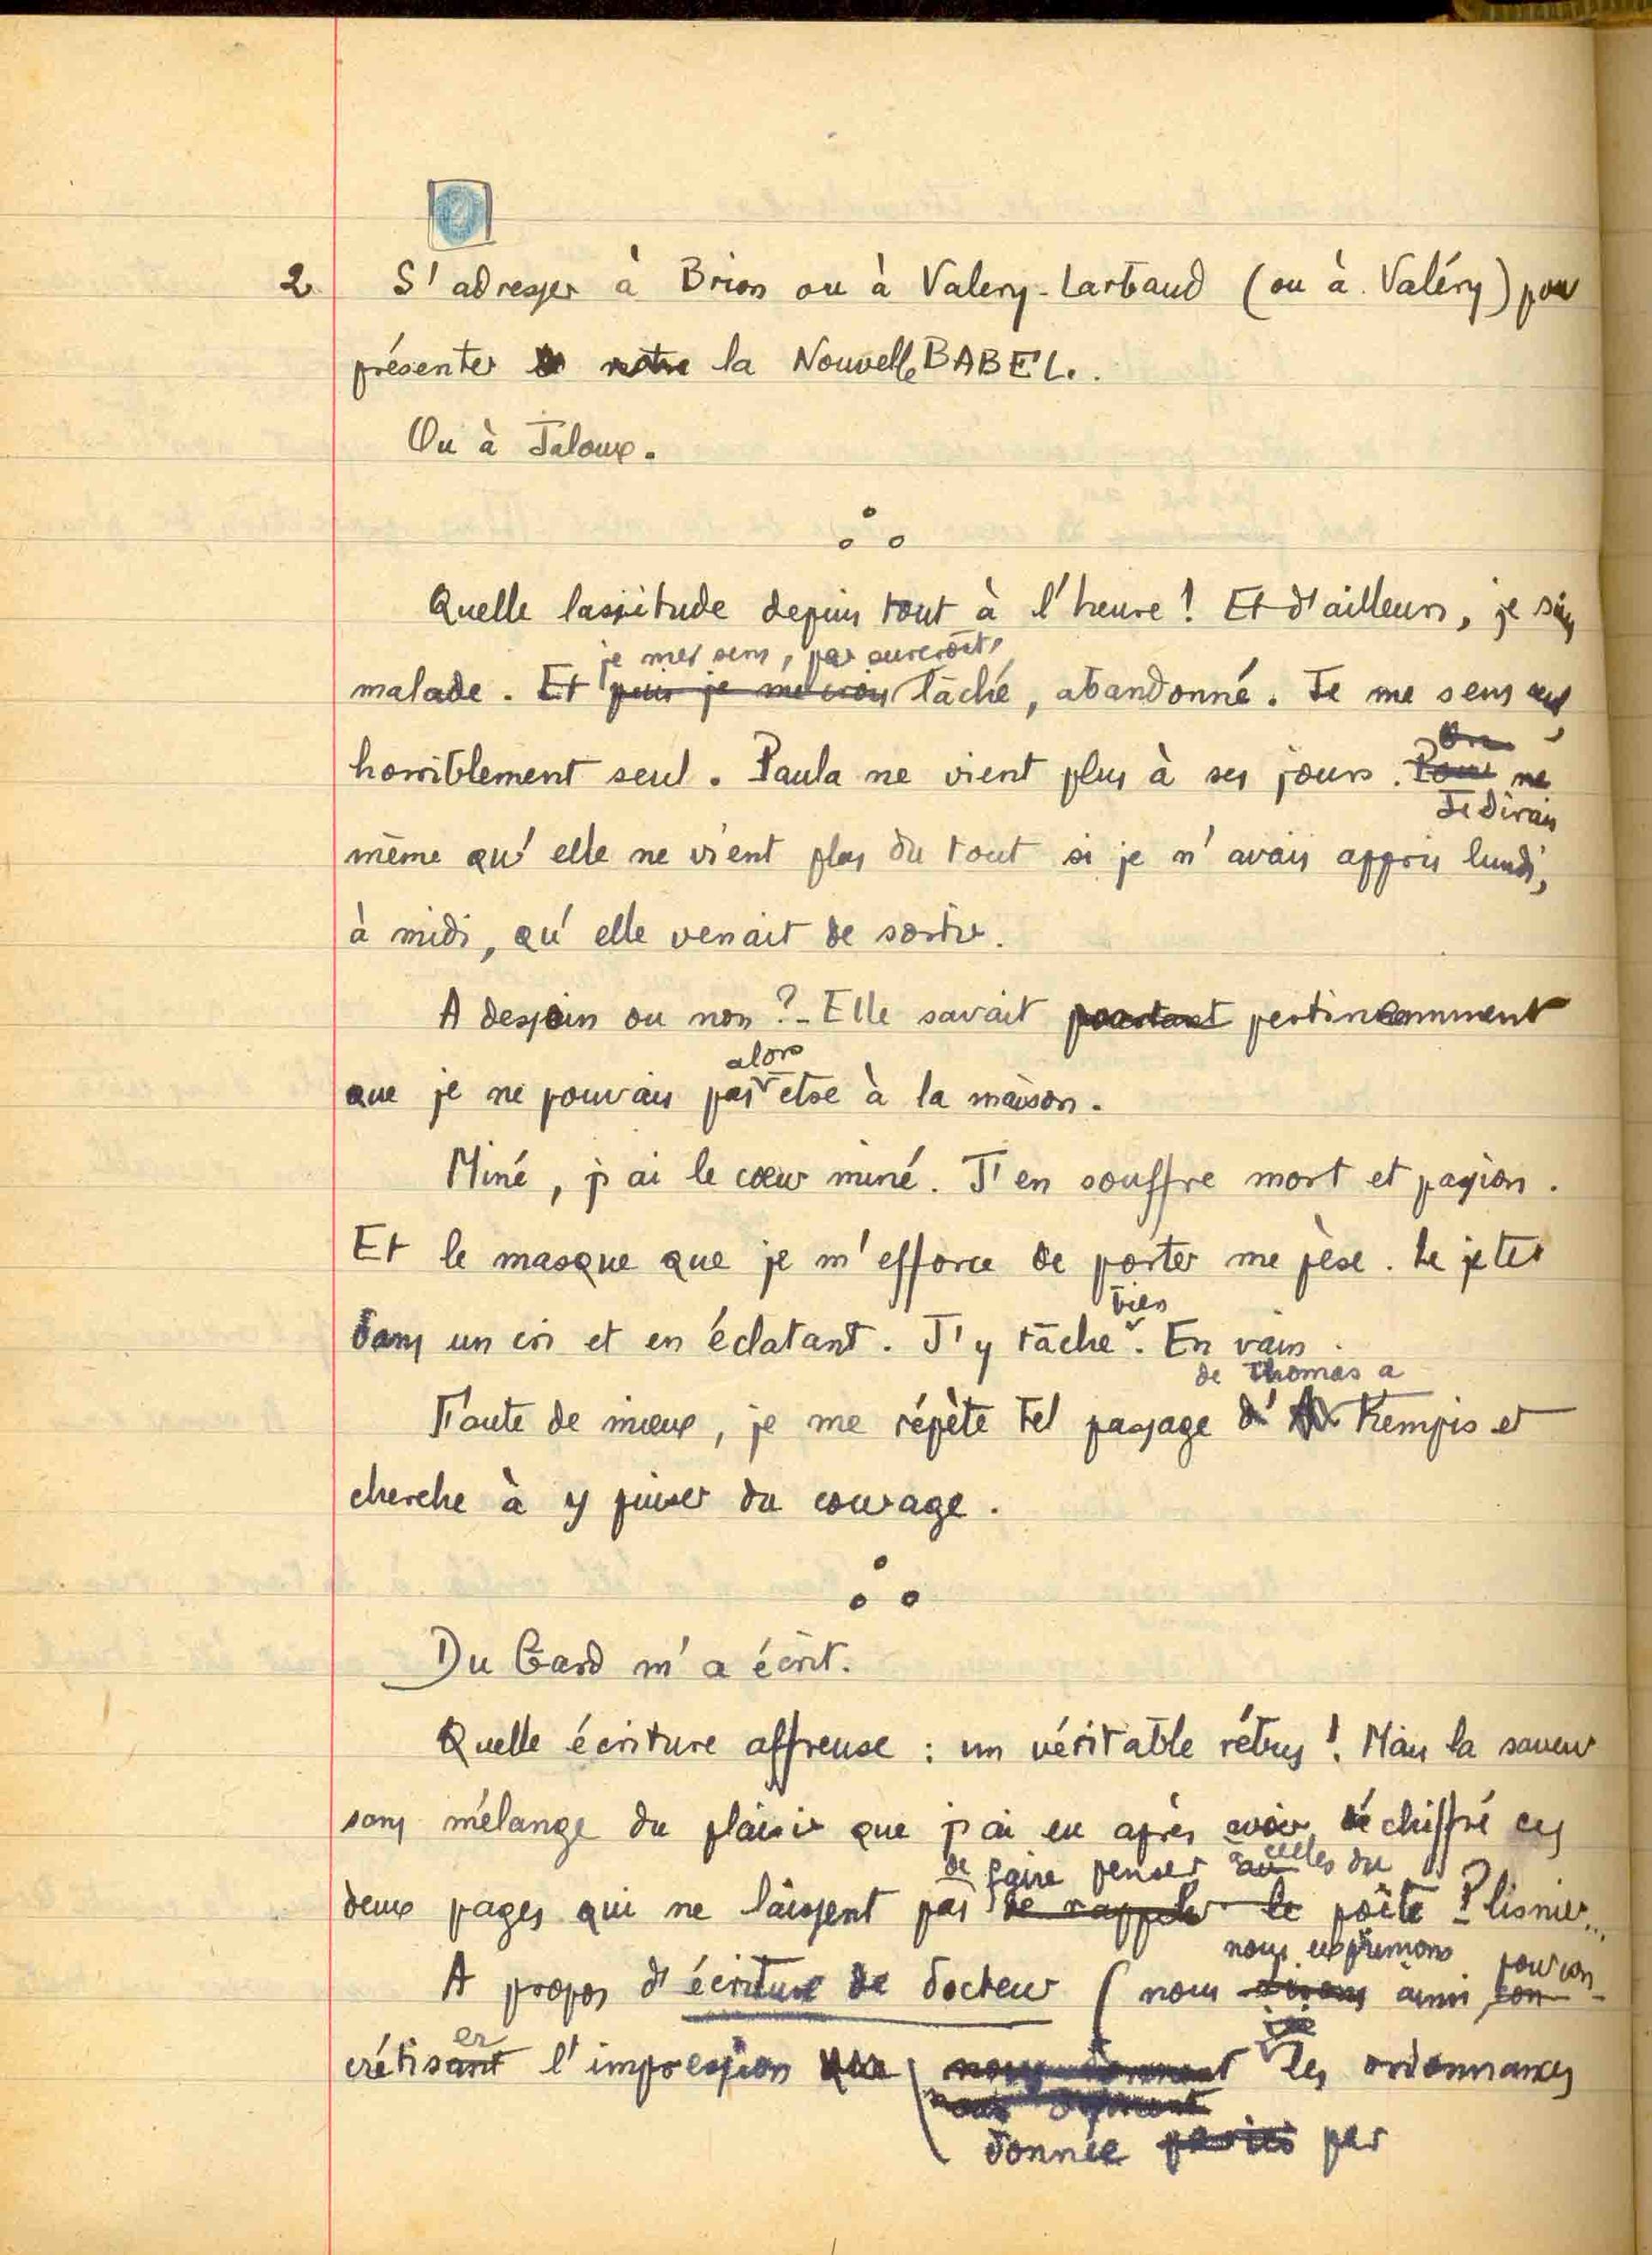 2 S'adresser à Brion ou à Valery-Larbaud (ou à Valéry) pour
présenter notre la Nouvelle BABEL.
Ou à Jaloux.
Quelle lassitude depuis tout à l'heure ! Et d'ailleurs, je suis
je me sens, par surcroît,
malade. Et puis je me crois lâché, abandonné. Je me sens
On
horriblement seul. Paula ne vient plus à ses jours. Pour ne
Je dirais
même qu'elle ne vient plus du tout si je n'avais appris lundi,
à midi, qu'elle venait de sortir.
A dessein ou non ? - Elle savait pourtant pertinemment
alors
que je ne pouvais pas être à la maison.
Miné, j'ai le cœur miné. J'en souffre mort et passion.
Et le masque que je m'efforce de porter me pèse. Le jeter
bien
dans un cri et en éclatant. J'y tâche. En vain.
de Thomas a
Faute de mieux, je me répète tel passage d' Kempis et
cherche à y puiser du courage.
Du Gard m'a écrit.
Quelle écriture affreuse : un véritable rébus ! Mais la saveur
sans mélange du plaisir que j'ai eu après avoir déchiffré ces
de faire penser à celles du
deux pages qui ne laissent pas de rappeler le poète Plisnier...
nous exprimons pour con-
A propos d'écriture de docteur (nous disons ainsi con-
er
crétisant l'impression que nous donnent les ordonnances
donnée par